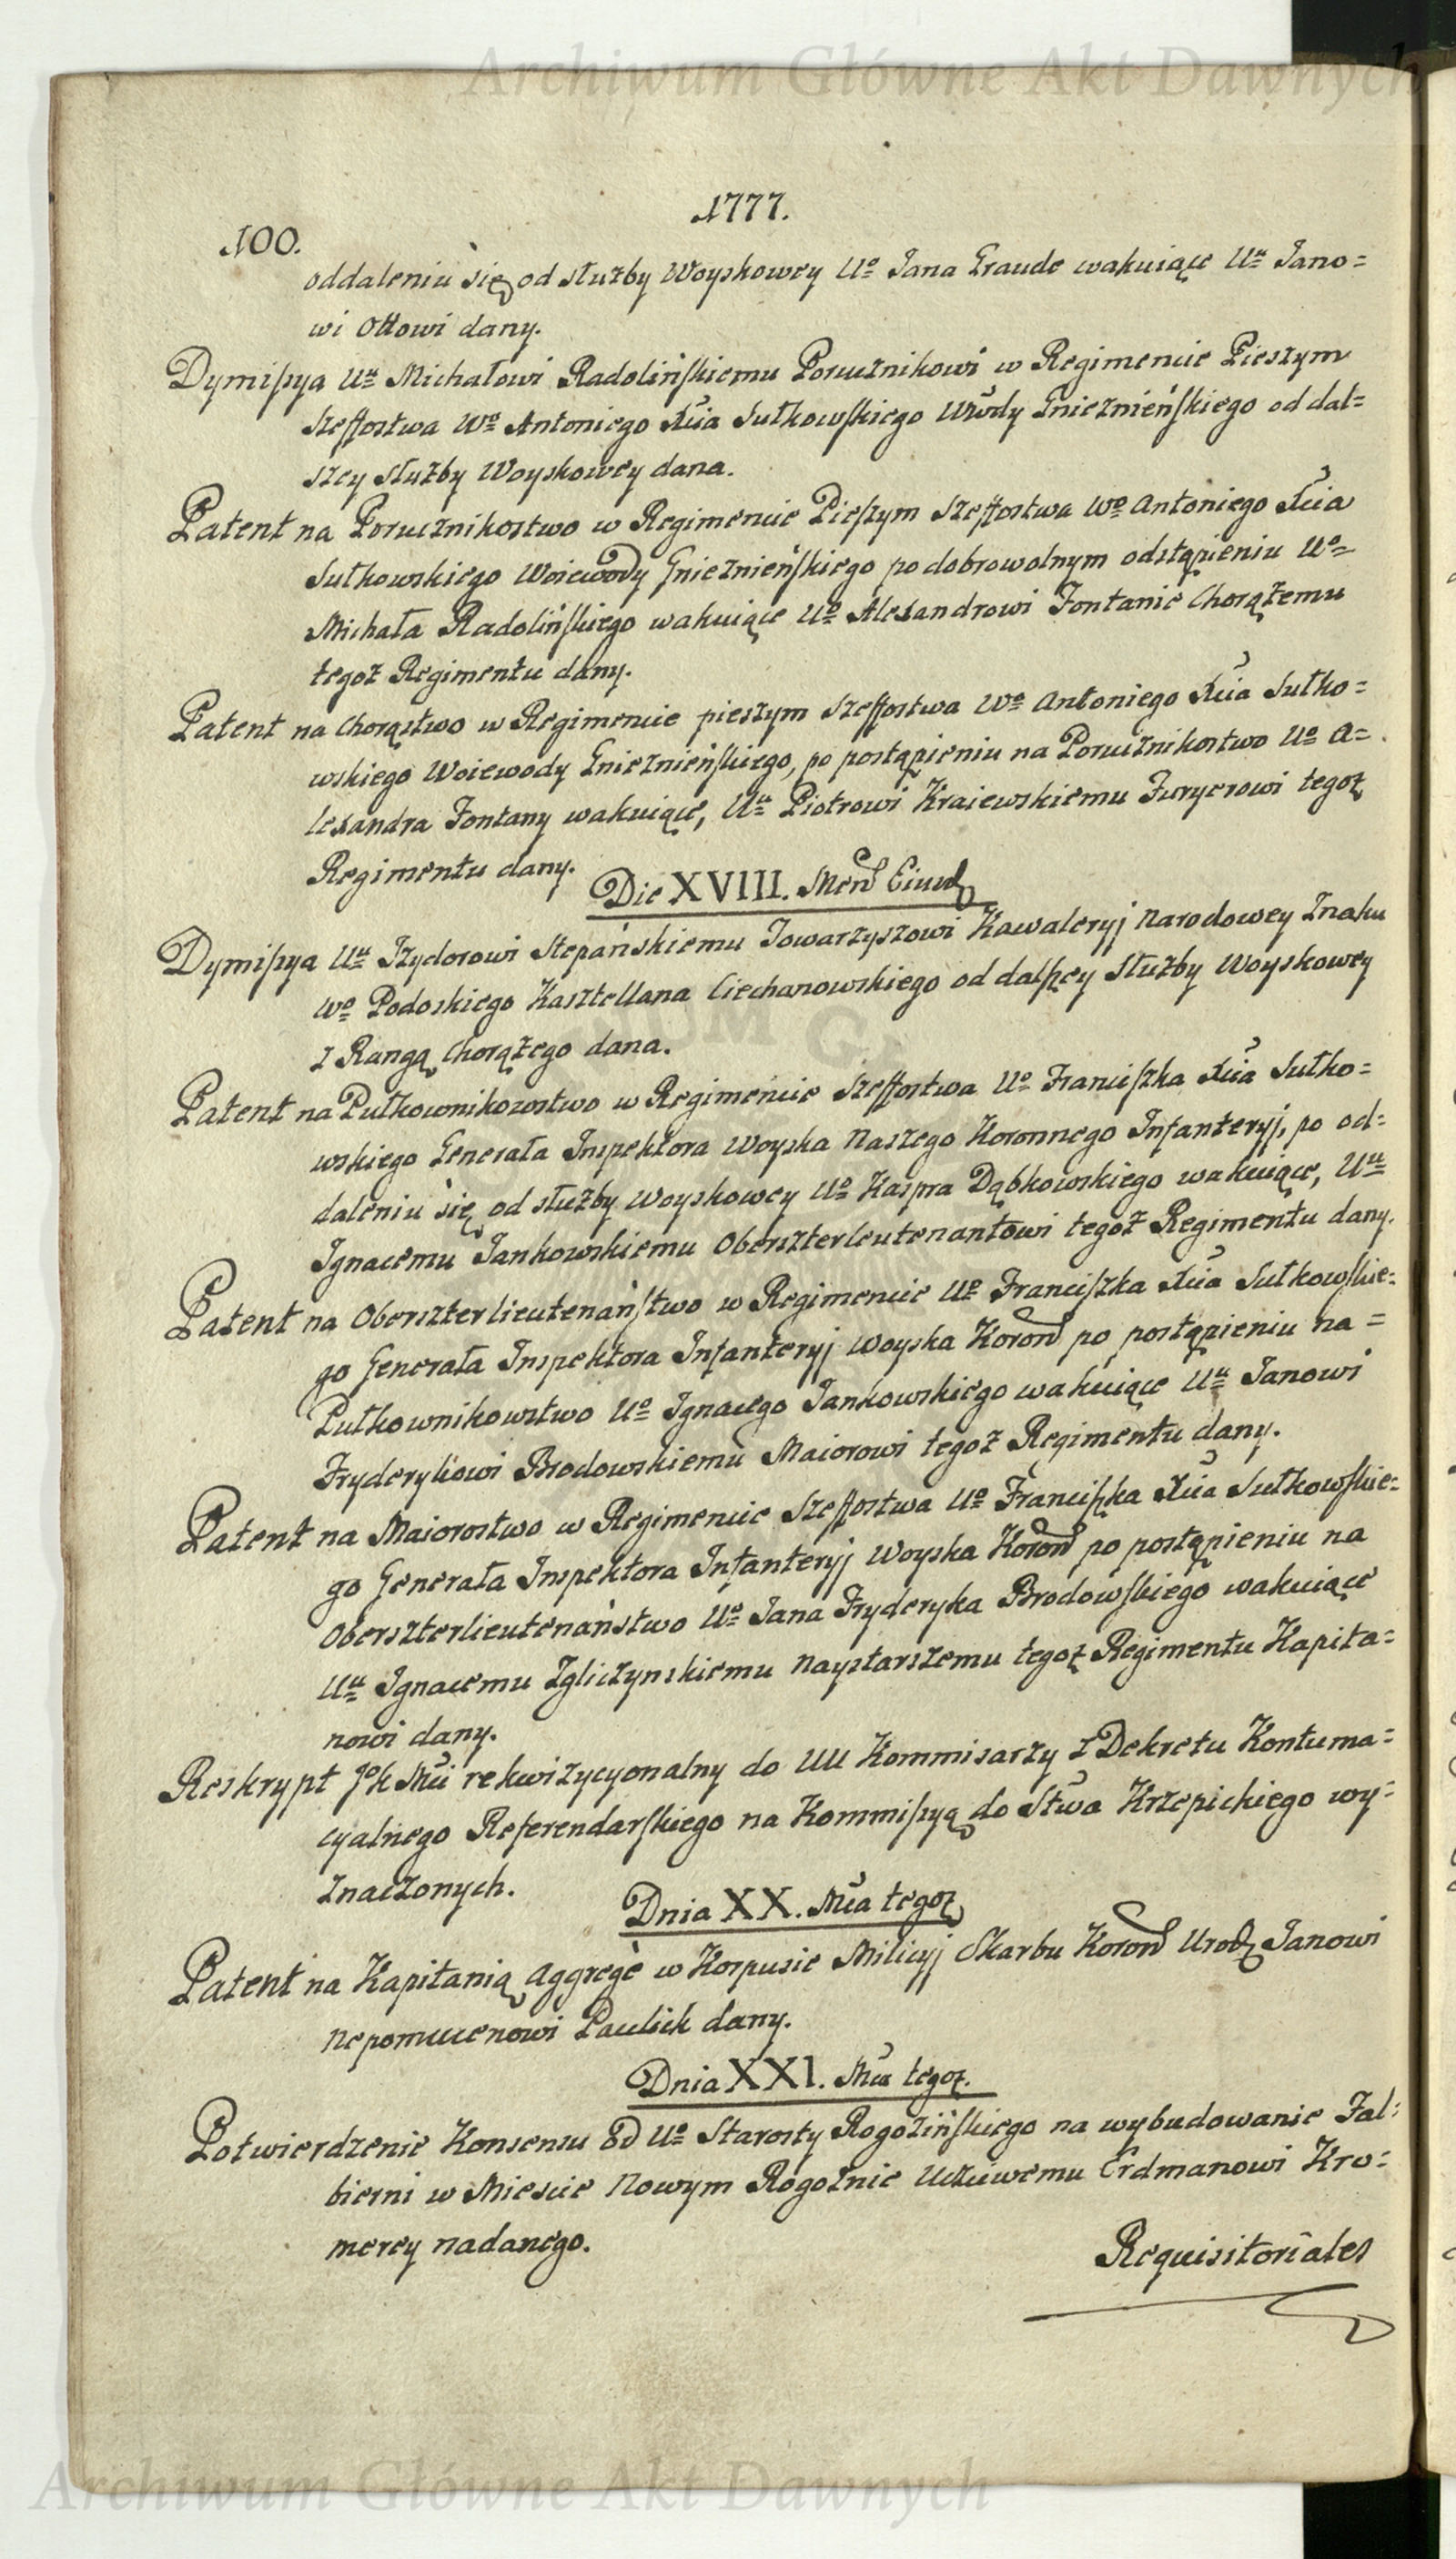 Archiwum Główne Akt Dawnych
1777.
100.
oddaleniu się od służby Woyskowey Uº Jana Graude wakuiące Uᵘ Jano=
wi Ottowi dany.
Dymißya Uᵘ Michałowi Radolińskiemu Porucznikowi w Regimencie Pieszym
Szeffostwa Wº Antoniego Xcia Sułkowskiego Wwdy Gnieznieńskiego od dal=
szey służby Woyskowey dana.
Patent na Porucznikostwo w Regimencie Pieszym Szeffostwa Wº Antoniego Xcia
Sułkowskiego Woiewody Gnieznieńskiego po dobrowolnym odstąpieniu Uº=
Michała Radolińskiego wakuiące Uº Alexandrowi Fontanie Chorążemu
tegoż Regimentu dany.
Patent na Chorąstwo w Regimencie pieszym Szeffostwa Wº Antoniego Xcia Sułko=
wskiego Woiewody Gnieznieńskiego, po postąpieniu na Porucznikostwo Uº A=
lexandra Fontany wakuiące, Uᵘ Piotrowi Kraiewskiemu Furyerowi tegoż
Regimentu dany.
Die XVIII. Mens Eiusd
Dymißya Uᵘ Izydorowi Stepańskiemu Towarzyszowi Kawaleryj Narodowey Znaku
Wº Podoskiego Kasztellana Ciechanowskiego od dalszey Służby Woyskowey
z Rangą Chorążego dana.
Patent na Pułkownikowstwo w Regimencie Szeffostwa Uº Franciszka Xcia Sułko=
wskiego Generała Inspektora Woyska Naszego Koronnego Infanteryj, po od=
daleniu się od służby Woyskowey Uº Kaspra Dąbkowskiego wakuiące, Uᵘ
Ignacemu Jankowskiemu Oberszterleutenantowi tegoż Regimentu dany.
Patent na Oberszterlieutenaństwo w Regimencie Uº Franciszka Xcia Sułkowskie=
go Generała Inspektora Infanteryj Woyska Koron po postąpieniu na =
Pułkownikowstwo Uº Ignacego Jankowskiego wakuiące Uᵘ Janowi
Fryderykowi Brodowskiemu Maiorowi tegoż Regimentu dany.
Patent na Maiorostwo w Regimencie Szeffostwa Uº Franciszka Xcia Sułkowskie=
go Generała Inspektora Infanteryj Woyska Koron po postąpieniu na
Oberszterlieutenaństwo Uº Jana Fryderyka Brodowskiego wakuiące
Uᵘ Ignacemu Zgliczynskiemu Naystarszemu tegoż Regimentu Kapita=
nowi dany.
Reskrypt JoK Mci rekwizycyonalny do UU Kommisarzy z Dekretu Kontuma=
cyalnego Referendarskiego na Kommißyą do Stwa Krzepickiego wy=
znaczonych.
Dnia XX. Mca tegoż
Patent na Kapitanią Aggregè w Korpusie Milicyj Skarbu Koron Urodz Janowi
Nepomucenowi Paulich dany.
Dnia XXI. Mca tegoż.
Potwierdzenie Konsensu Od Uº Starosty Rogozińskiego na wybudowanie Fal=
bierni w Miescie Nowym Rogoźnie Uczciwemu Erdmanowi Kro=
merey nadanego.
Requisitoriales
Archiwum Główne Akt Dawnych